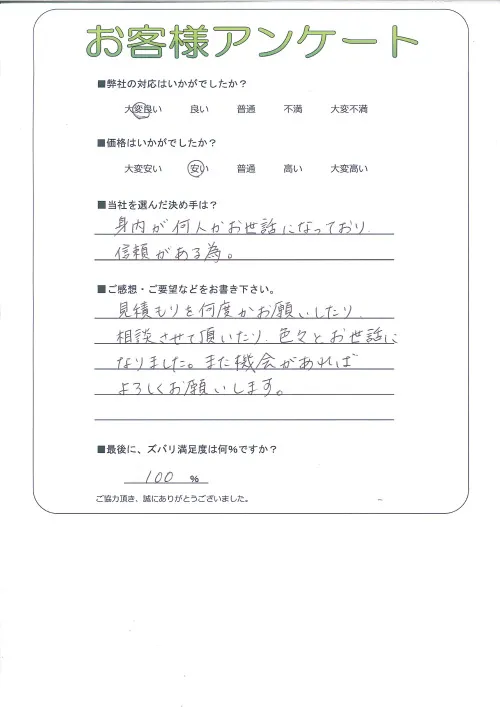 お客様アンケート
■弊社の対応はいかがでしたか？
大変良い 良い 普通 不満 大変不満
■価格はいかがでしたか？
大変安い 安い 普通 高い 大変高い
■当社を選んだ決め手は？
身内が何人かお世話になっており、
信頼がある為。
■ご感想・ご要望などをお書き下さい。
見積もりを何度かお願いしたり、
相談させて頂いたり、色々とお世話に
なりました。また機会があれば
よろしくお願いします。
■最後に、ズバリ満足度は何％ですか？
100 %
ご協力頂き、誠にありがとうございました。